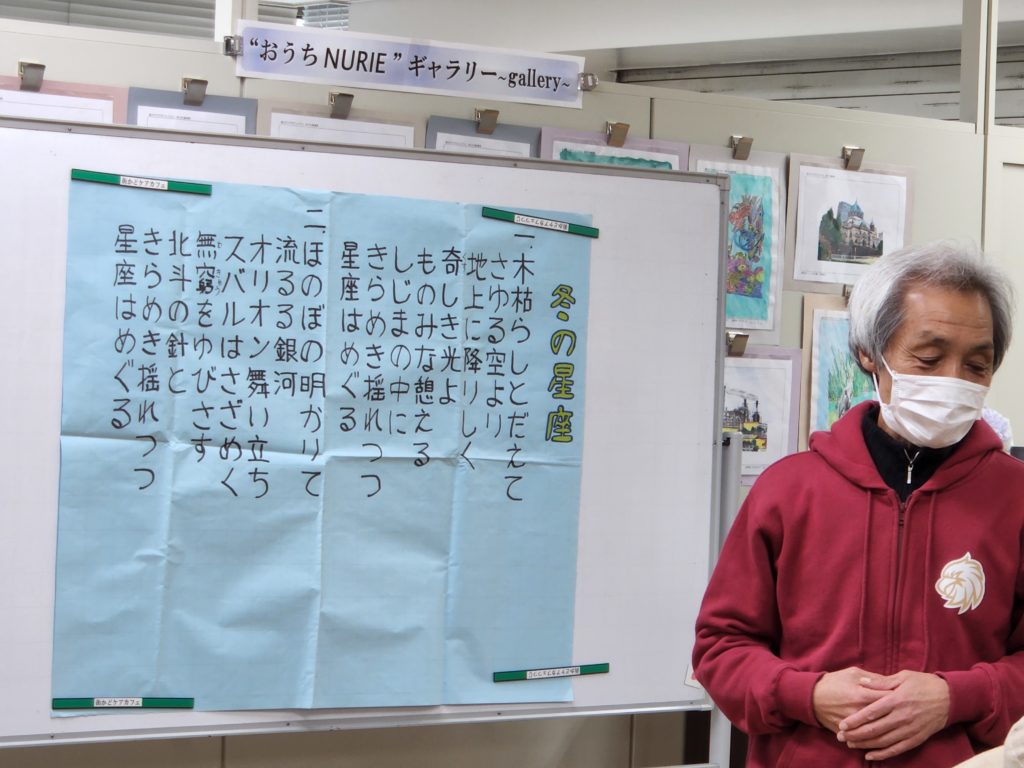 “おうち NURIE ” ギャラリー~gallery~
街かどケアカフェ
冬の星座
一木枯らしとだえて
さゆる空より
地上に降りしく
奇しき光よ
ものみな憩える
しじまの中に
きらめき揺れつつ
星座はめぐる
二ほのぼの明かりて
流るる銀河
オリオン舞い立ち
スバルはさざめく
無窮をゆびさす
北斗の針と
きらめき揺れつつ
星座はめぐる
街かどケアカフェ